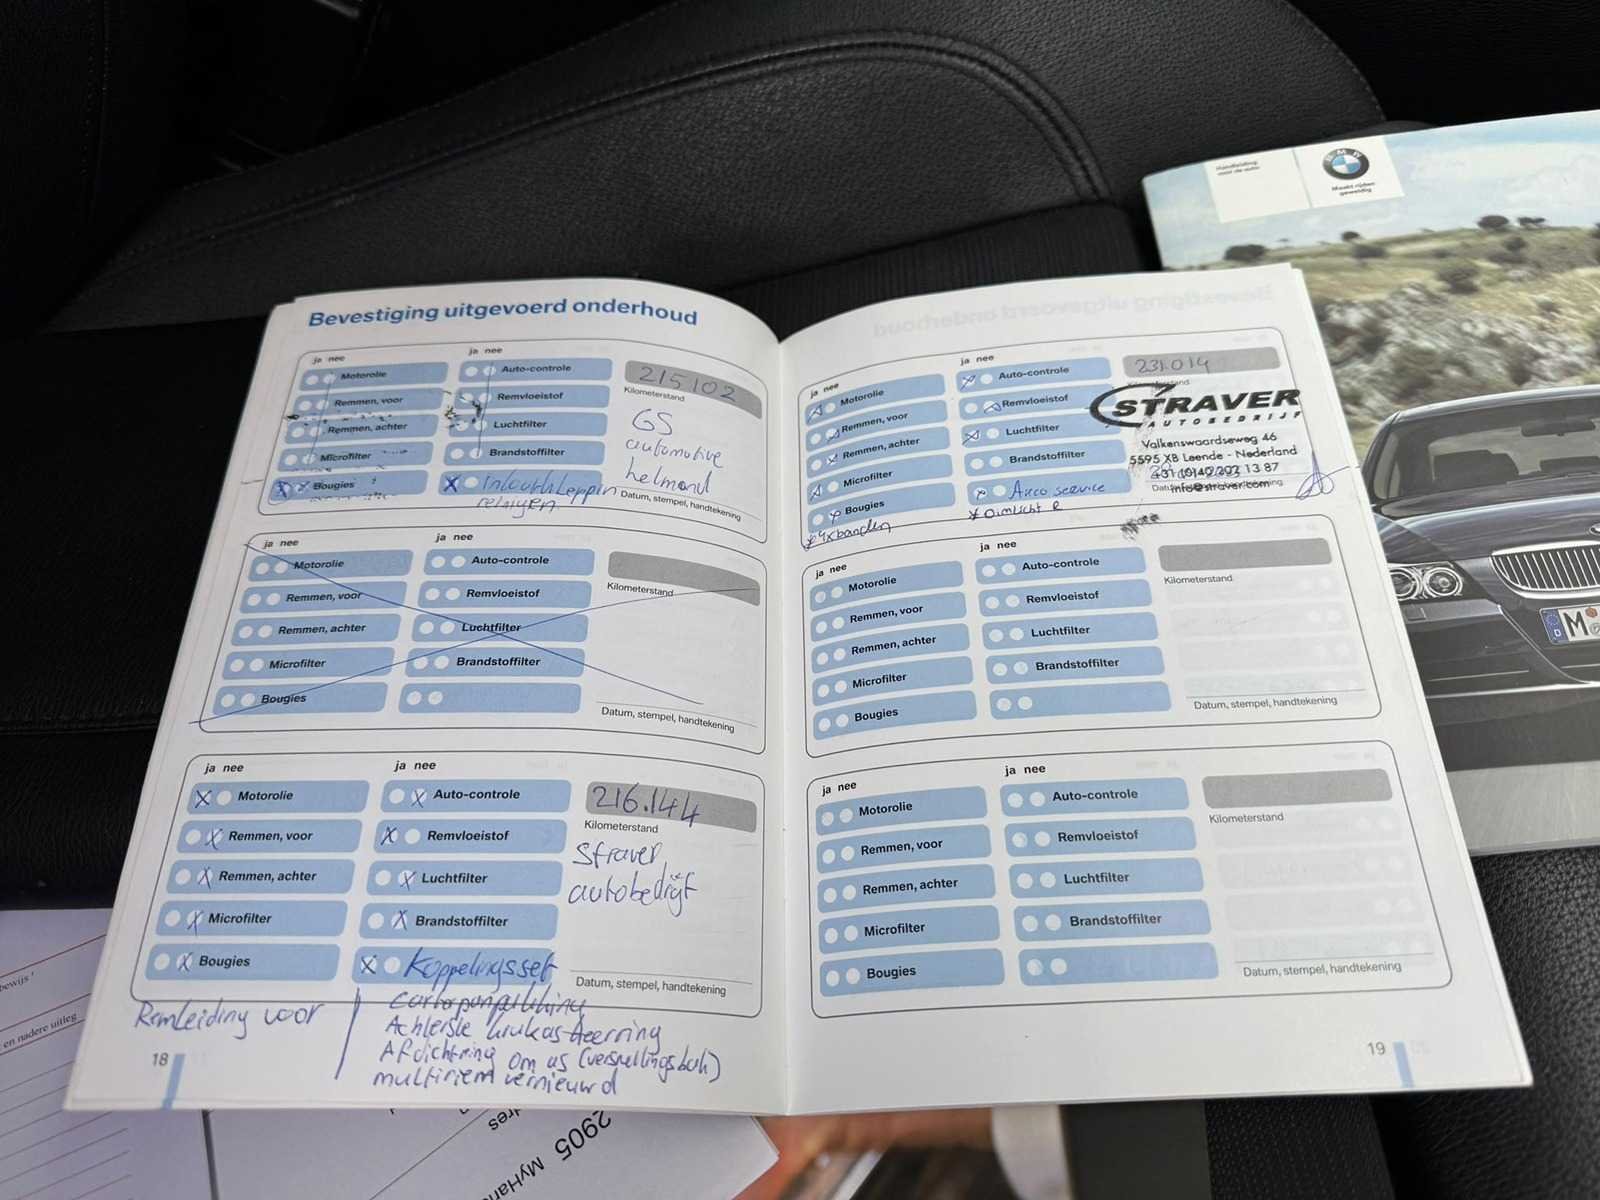 Handleiding
voor de auto
BMW
Maakt rijden
geweldig
Bevestiging uitgevoerd onderhoud
ja nee
ja nee
Motorolie
Auto-controle
215102
Remmen, voor
Remvloeistof
Kilometerstand
Remmen, achter
Luchtfilter
GS
automotive
helmond
Microfilter
Brandstoffilter
Bougies
Datum, stempel, handtekening
ja nee
ja nee
Motorolie
Auto-controle
Remmen, voor
Remvloeistof
Kilometerstand
Remmen, achter
Luchtfilter
Microfilter
Brandstoffilter
Bougies
Datum, stempel, handtekening
ja nee
ja nee
Motorolie
Auto-controle
216.144
Remmen, voor
Remvloeistof
Kilometerstand
Straver
autobedrijf
Remmen, achter
Luchtfilter
Microfilter
Brandstoffilter
Bougies
Koppelingsset
Datum, stempel, handtekening
Remleiding voor
Achterste krukas keerring
Afdichtring om as (versnellingsbak)
multiriem vernieuwd
18
ja nee
ja nee
Motorolie
Auto-controle
231.014
Remmen, voor
Remvloeistof
Kilometerstand
STRAVER
AUTOBEDRIJF
Valkenswaardseweg 46
5595 XB Leende - Nederland
+31 (0)40 202 13 87
info@straver.com
Remmen, achter
Luchtfilter
Microfilter
Brandstoffilter
Bougies
Airco service
* 4x banden
* Dimlicht R
ja nee
ja nee
Motorolie
Auto-controle
Remmen, voor
Remvloeistof
Kilometerstand
Remmen, achter
Luchtfilter
Microfilter
Brandstoffilter
Bougies
Datum, stempel, handtekening
ja nee
ja nee
Motorolie
Auto-controle
Remmen, voor
Remvloeistof
Kilometerstand
Remmen, achter
Luchtfilter
Microfilter
Brandstoffilter
Bougies
Datum, stempel, handtekening
19
bewijs'
en nadere uitleg
2905